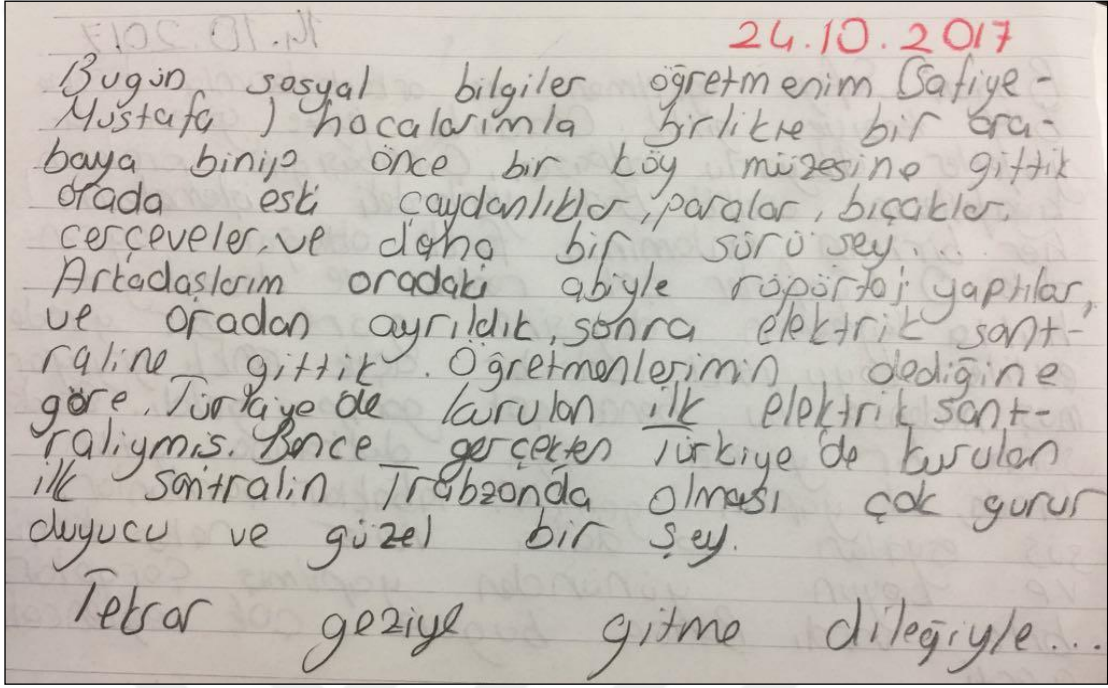 24.10.2017
Bugün sosyal bilgiler öğretmenim (Safiye-
Mustafa) hocalarımla birlikte bir ara-
baya binip önce bir köy müzesine gittik
orada eski çaydanlıklar, paralar, bıçaklar,
çerçeveler, ve daha bir sürü şey...
Arkadaşlarım oradaki abiyle röpörtaj yaptılar,
ve oradan ayrıldık, sonra elektrik sant-
raline gittik. Öğretmenlerimin dediğine
göre, Türkiye de kurulan ilk elektrik sant-
raliymiş. Bence gerçekten Türkiye'de kurulan
ilk santralin Trabzonda olması çok gurur
duyucu ve güzel bir şey.
Tekrar geziye gitme dileğiyle...